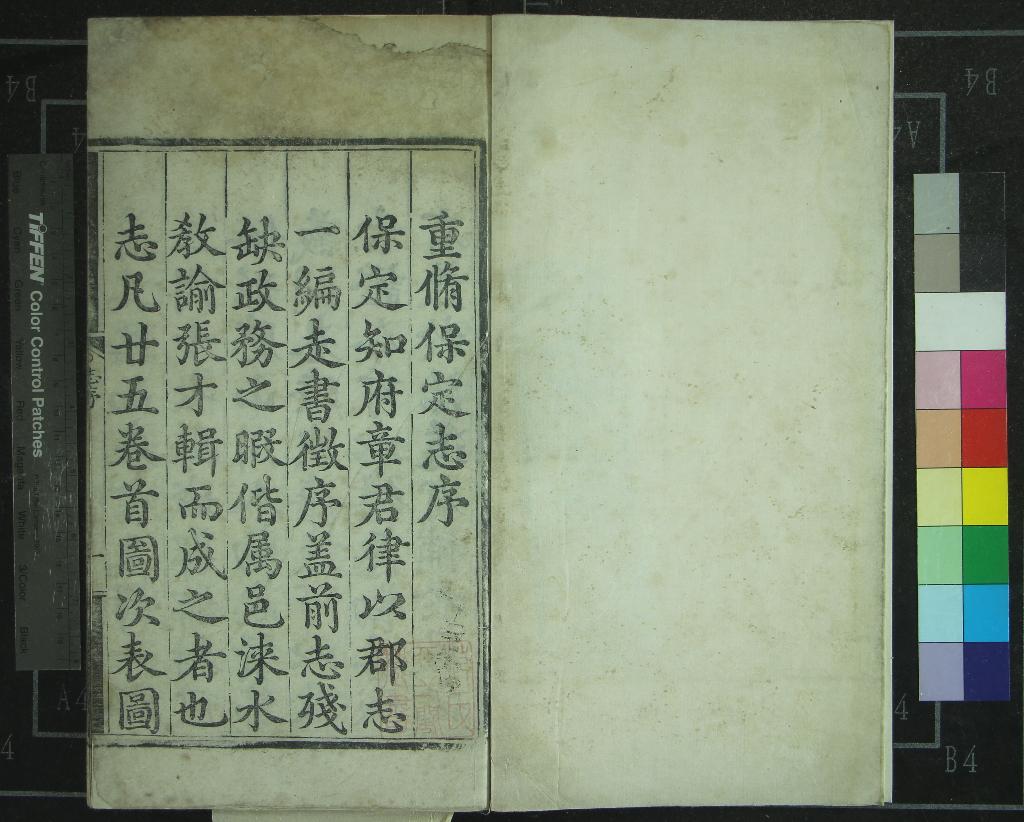 重脩保定志序
保定知府章君律以郡志
一編走書徵序盖前志殘
缺政務之暇偕属邑淶水
教諭張才輯而成之者也
志凡廿五卷首圖次表圖
TIFFEN Color Control Patches
B4
B4
A4
A4
B4